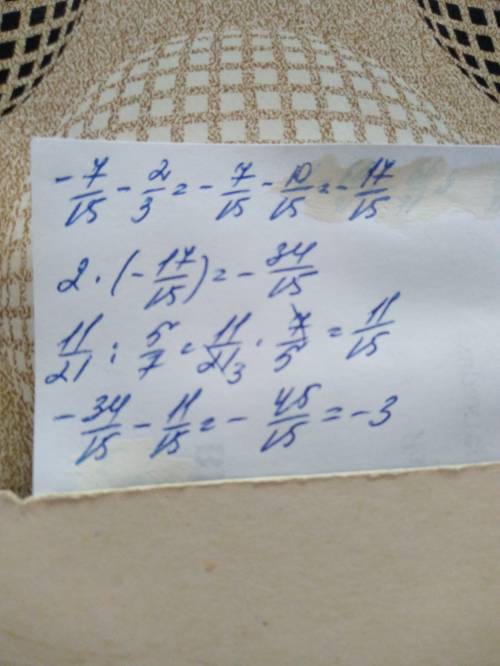 -7/15 - 2/3 = -7/15 - 10/15 = -17/15
2 · (-17/15) = -34/15
11/21 : 5/7 = 11/21 3 · 7/5 = 11/15
-34/15 - 11/15 = -45/15 = -3